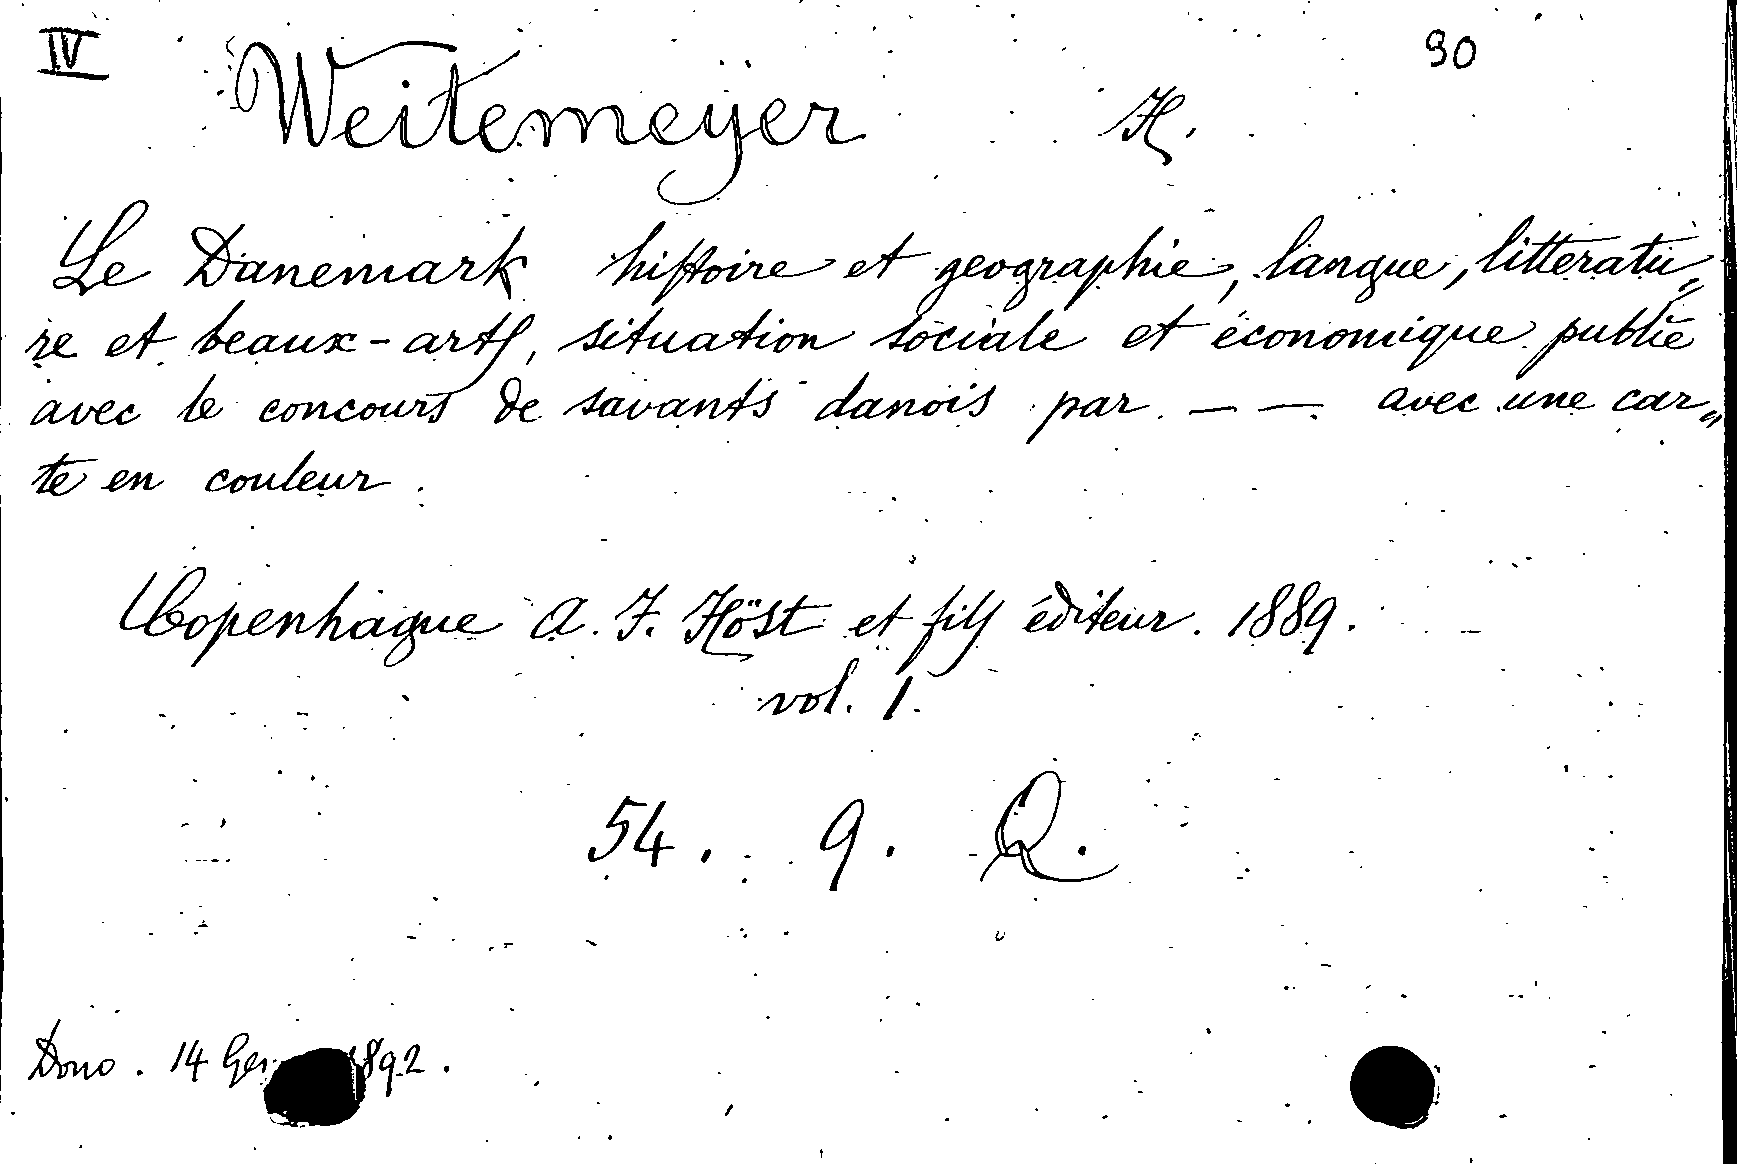 IV 90
Weitemeyer H.
Le Danemark histoire et geographie, langue, litteratu„
re et beaux-arts, situation sociale et économique publié
avec le concours de savants danois par — — avec une car„
te en couleur.
Copenhague A. F. Höst et fils éditeur. 1889.
vol. 1.
54. 9. Q.
Dono. 14 1892.